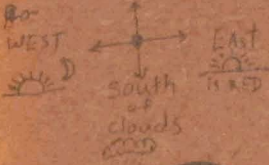 WEST
EAST
IS RED
South
of
clouds